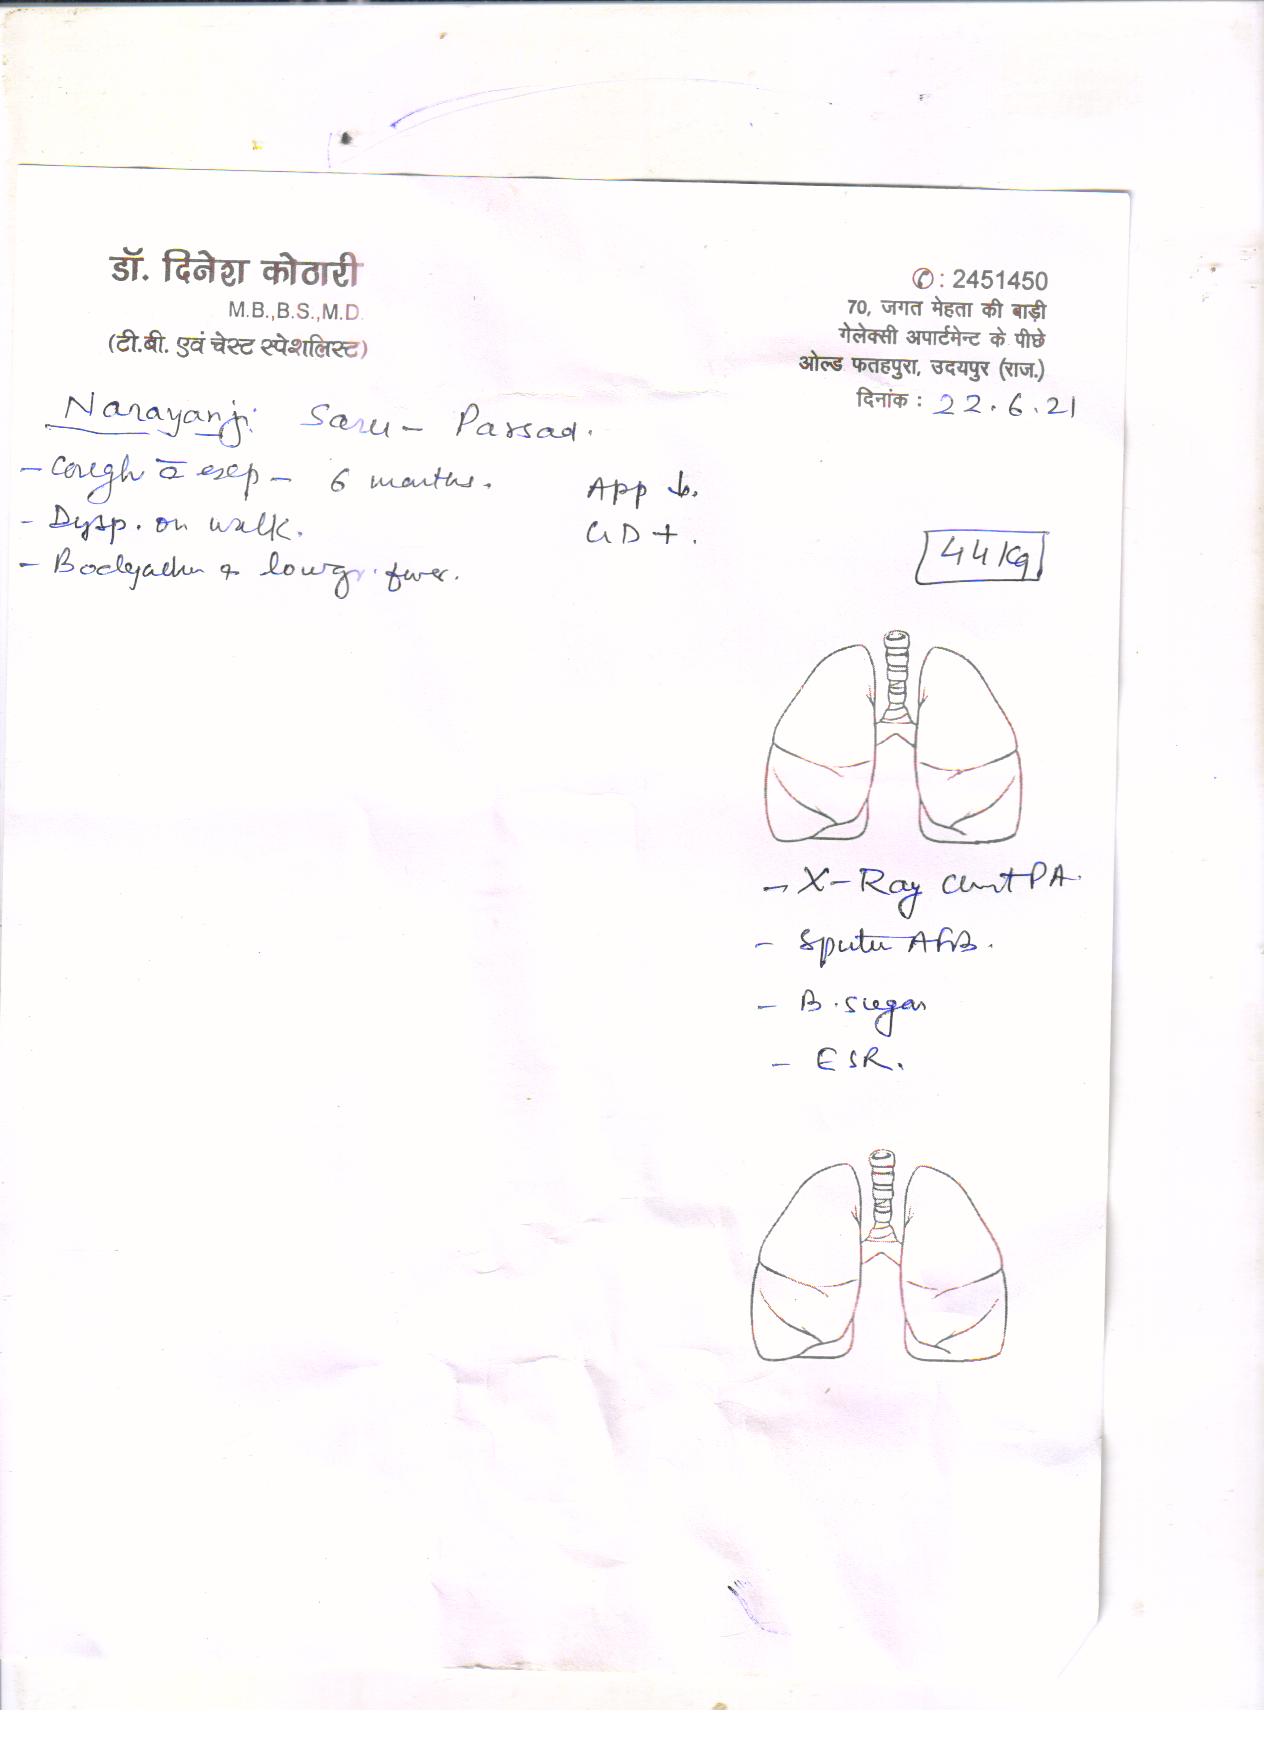 डॉ. दिनेश कोठारी
M.B.,B.S.,M.D.
(टी.बी. एवं चेस्ट स्पेशलिस्ट)
✆: 2451450
70, जगत मेहता की बाड़ी
गेलेक्सी अपार्टमेन्ट के पीछे
ओल्ड फतहपुरा, उदयपुर (राज.)
दिनांक : 22.6.21
Narayanji Saru - Parsad.
- Cough c̄ exp - 6 months. App ↓.
- Dysp. on walk. GD +.
- Bodyache & low gr. fever.
44 Kg
- X-Ray Chest PA.
- Sputum AFB.
- B. sugar
- ESR.